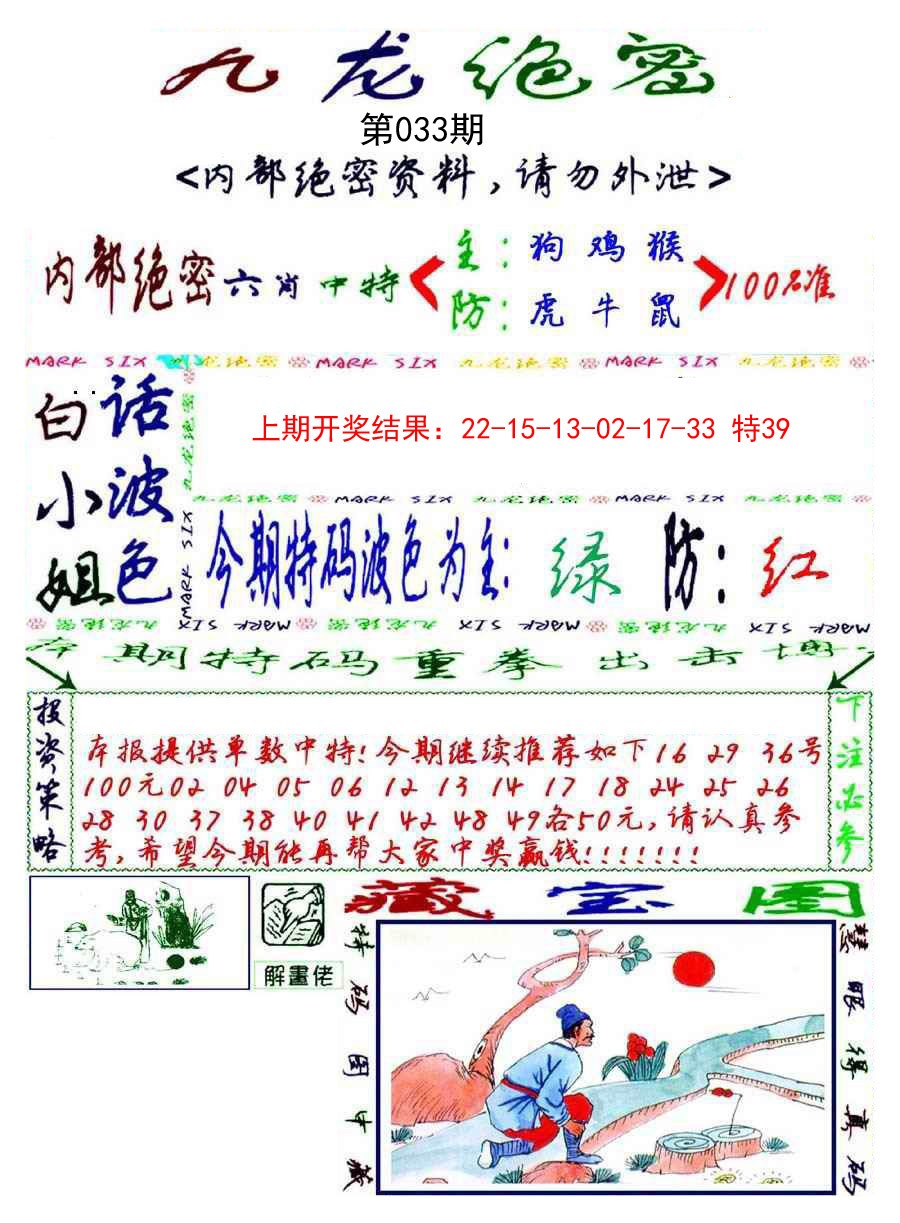 九龙绝密
第033期
<内部绝密资料,请勿外泄>
内部绝密六肖中特
主:狗鸡猴
防:虎牛鼠
100%准
MARK SIX 九龙绝密 MARK SIX 九龙绝密 MARK SIX 九龙绝密
白小姐
话波色
九龙绝密
MARK SIX
上期开奖结果：22-15-13-02-17-33 特39
九龙绝密 MARK SIX 九龙绝密 MARK SIX
今期特码波色为主:绿 防:红
MARK SIX 九龙绝密 MARK SIX 九龙绝密 MARK SIX 九龙绝密
本期特码重拳出击博
投资策略
本报提供单数中特!今期继续推荐如下16 29 36号
100元02 04 05 06 12 13 14 17 18 24 25 26
28 30 37 38 40 41 42 48 49各50元,请认真参
考,希望今期能再帮大家中奖赢钱!!!!!!!
下注必参
解畫佬
藏宝图
特码图中藏
慧眼得真码